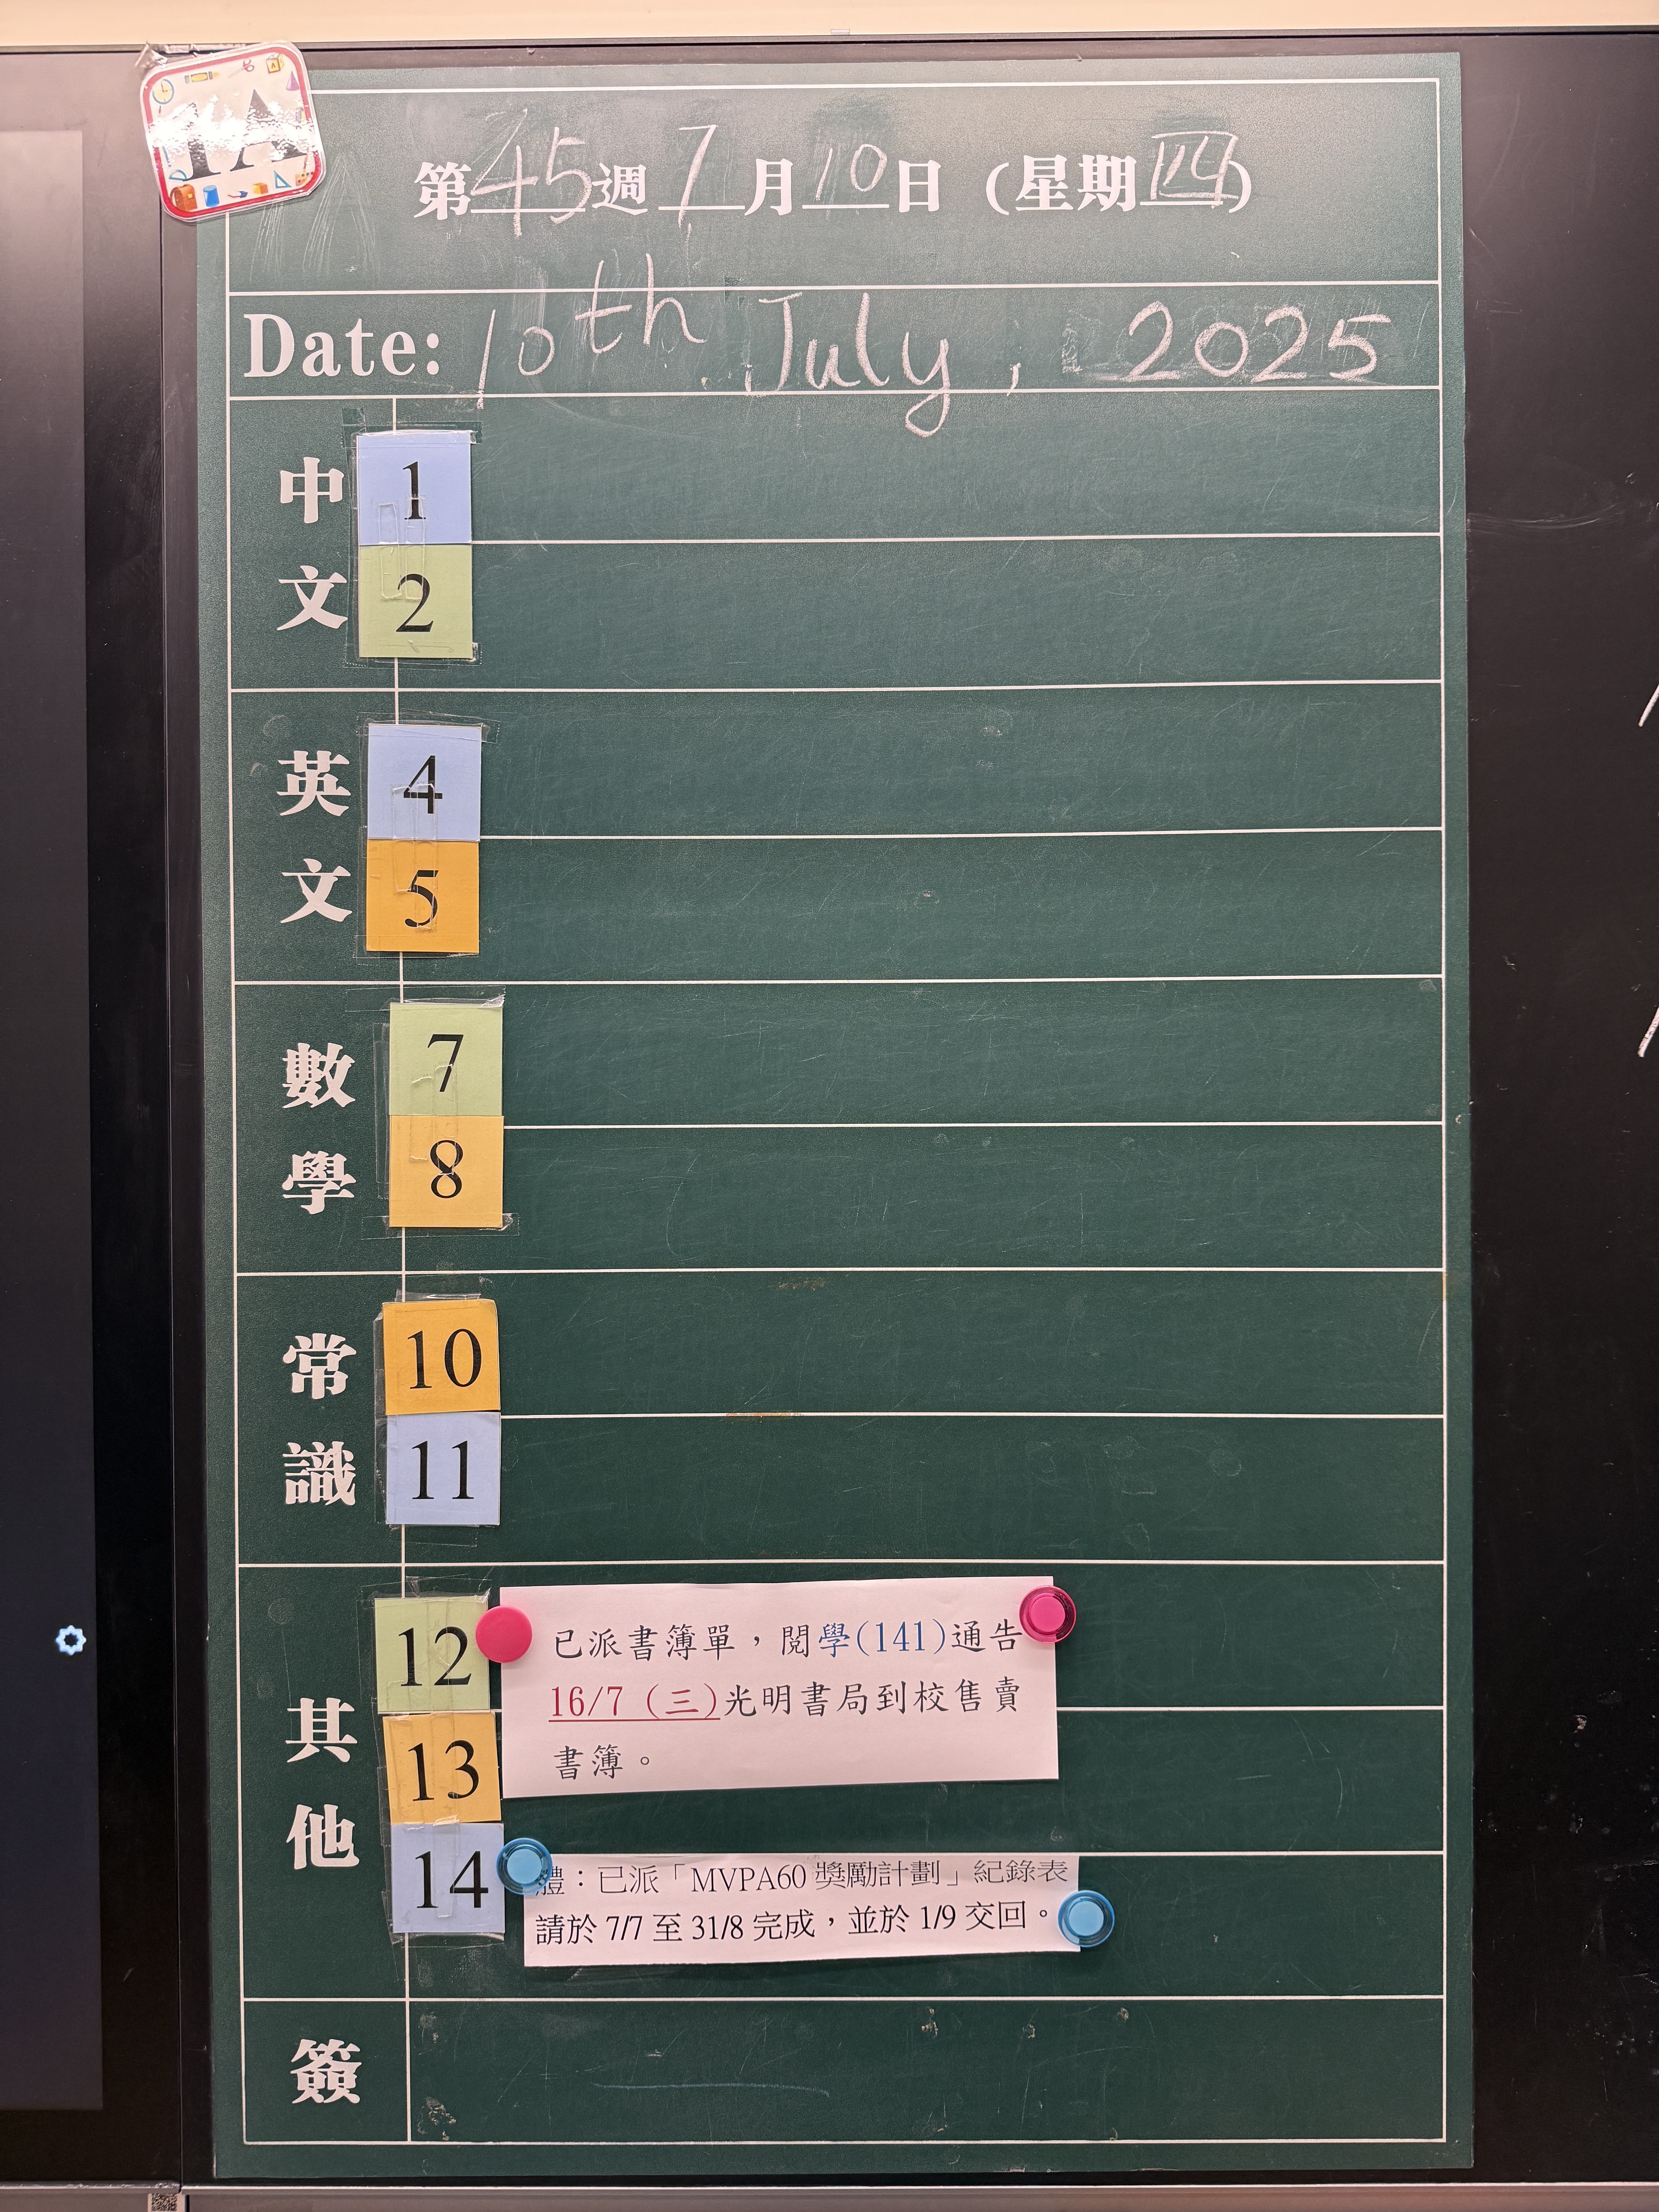 1A
第45週 7月10日 (星期四)
Date: 10th July, 2025
中文
1
2
英文
4
5
數學
7
8
常識
10
11
其他
12
13
14
已派書簿單，閱學(141)通告
16/7 (三)光明書局到校售賣
書簿。
體：已派「MVPA60 獎勵計劃」紀錄表
請於 7/7 至 31/8 完成，並於 1/9 交回。
簽